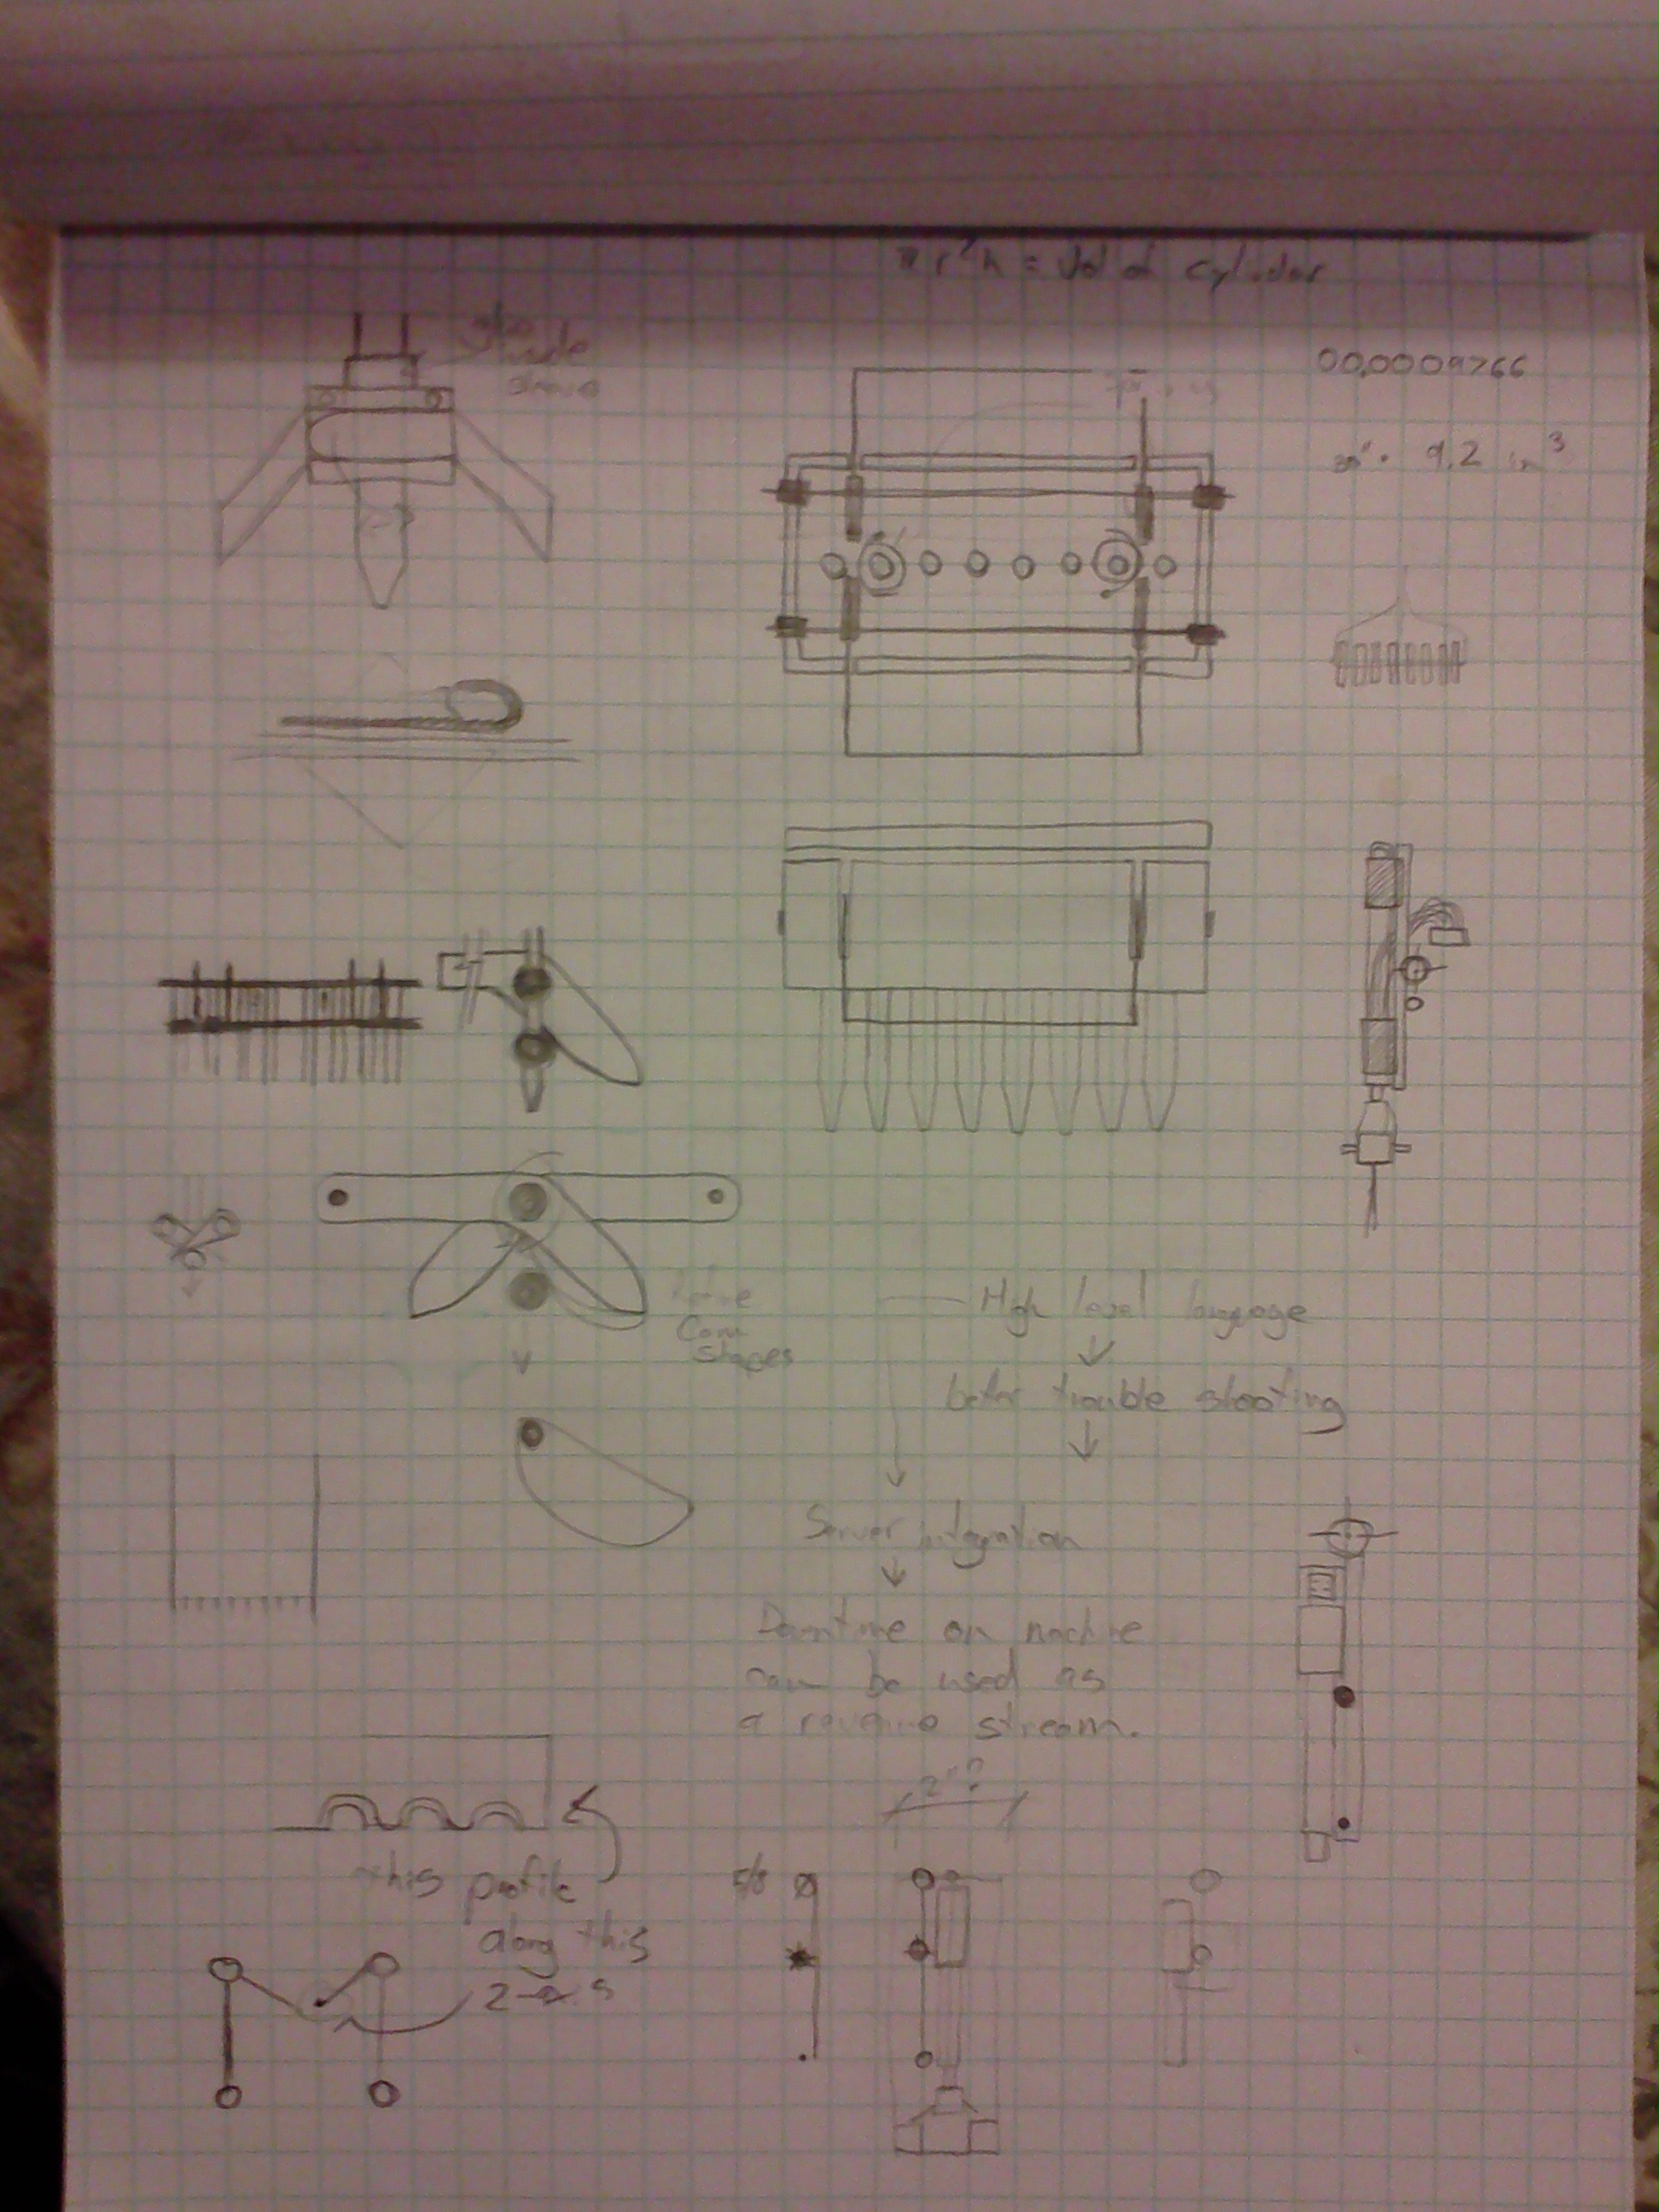 π r²h = Vol of cylinder
inside
00.0009766
9.2 in³
Cam
shapes
High level language
↓
better trouble shooting
↓
Server integration
↓
Downtime on machine
can be used as
a revenue stream.
2"?
this profile
along this
5/8